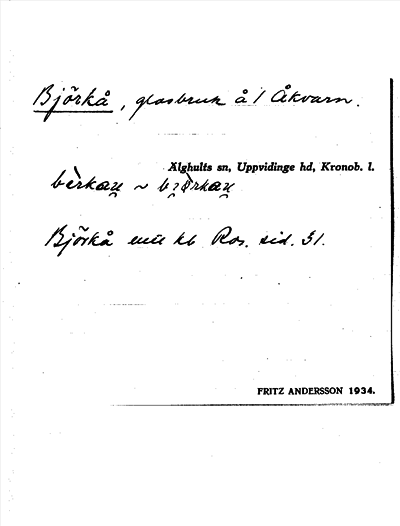 Björkå, glasbruk å 1 Åkvarn.
Älghults sn, Uppvidinge hd, Kronob. l.
Björkå enl kb Ros. sid. 51.
FRITZ ANDERSSON 1934.